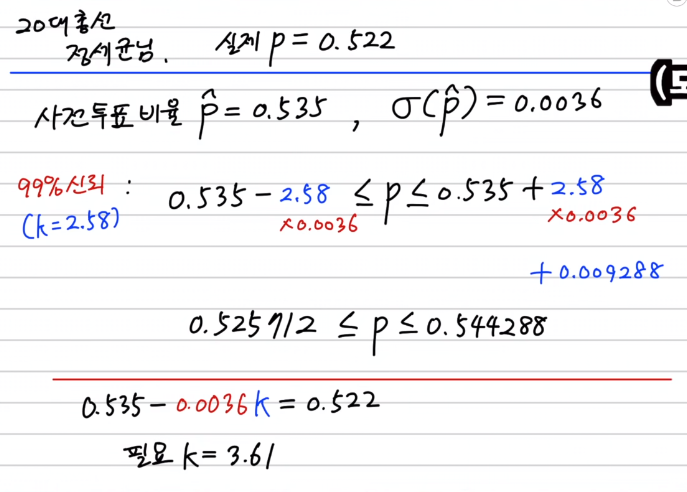 20대 총선
정세균님. 실제 p = 0.522
사전투표 비율 p̂ = 0.535 , σ(p̂) = 0.0036
99% 신뢰 : 0.535 - 2.58 ≤ p ≤ 0.535 + 2.58
(k = 2.58) ×0.0036 ×0.0036
+ 0.009288
0.525712 ≤ p ≤ 0.544288
0.535 - 0.0036k = 0.522
필요 k = 3.61